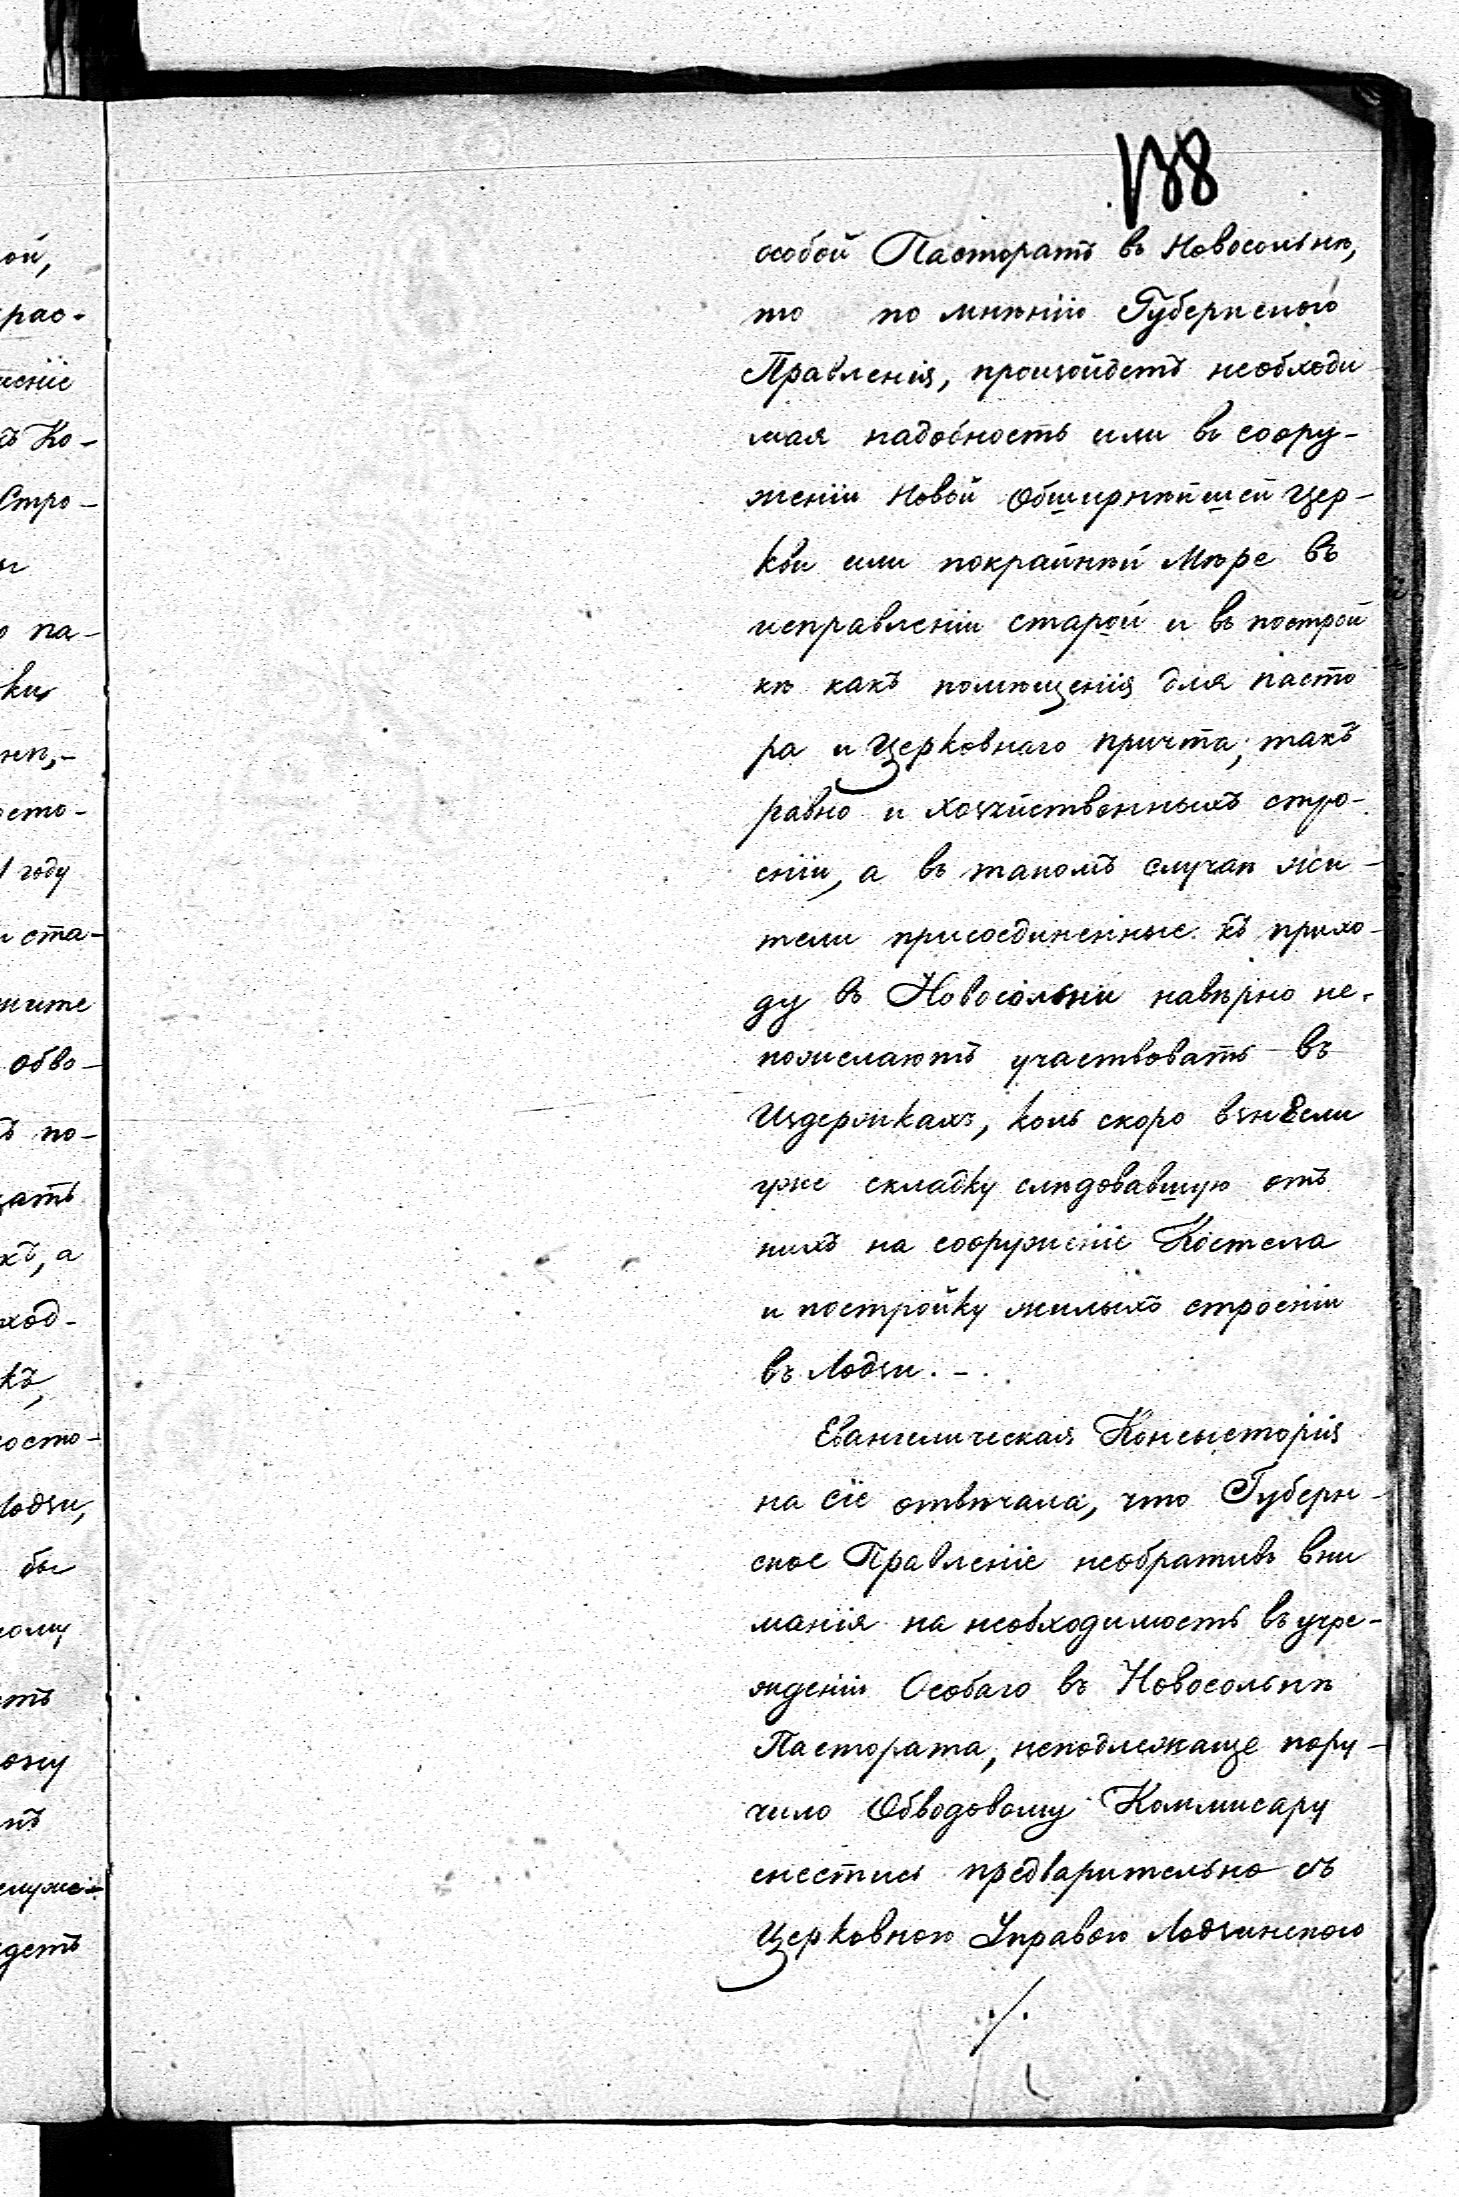 138
особой Пасторатъ въ Новосольнѣ,
то по мнѣнію Губернскаго
Правленія, произойдетъ необходи
мая надобность или въ соору-
женіи новой обширнѣйшей Цер-
кви или покрайнѣй мѣре въ
исправленіи старой и въ построй
кѣ какъ помѣщенія для пасто
ра и Церковнаго причта, такъ
равно и хозяйственныхъ стро-
еніи, а въ такомъ случаѣ жи-
тели присоединенные къ прихо-
ду въ Новосольни навѣрно не-
пожелаютъ участвовать въ
издержкахъ, коль скоро взнесли
уже складку слѣдовавшую отъ
нихъ на сооруженіе Костела
и постройку жилыхъ строеніи
въ Лодзи. -.
Евангелическая Консысторія
на сіе отвѣчала, что Губерн-
ское Правленіе необративъ вни
манія на необходимость въ учре-
жденіи Особаго въ Новосольнѣ
Пастората, неподлежаще пору-
чило Обводовому Коммисару
снестись предварительно съ
Церковною Управою Лодзинскаго
./.
ой,
рас-
ъ Ко-
Стро-
о па-
сто-
1 году
и ста-
жите
обво-
ъ по-
ать
хъ, а
ход-
къ,
косто-
Лодзи,
бы
кому
етъ
служе-
детъ